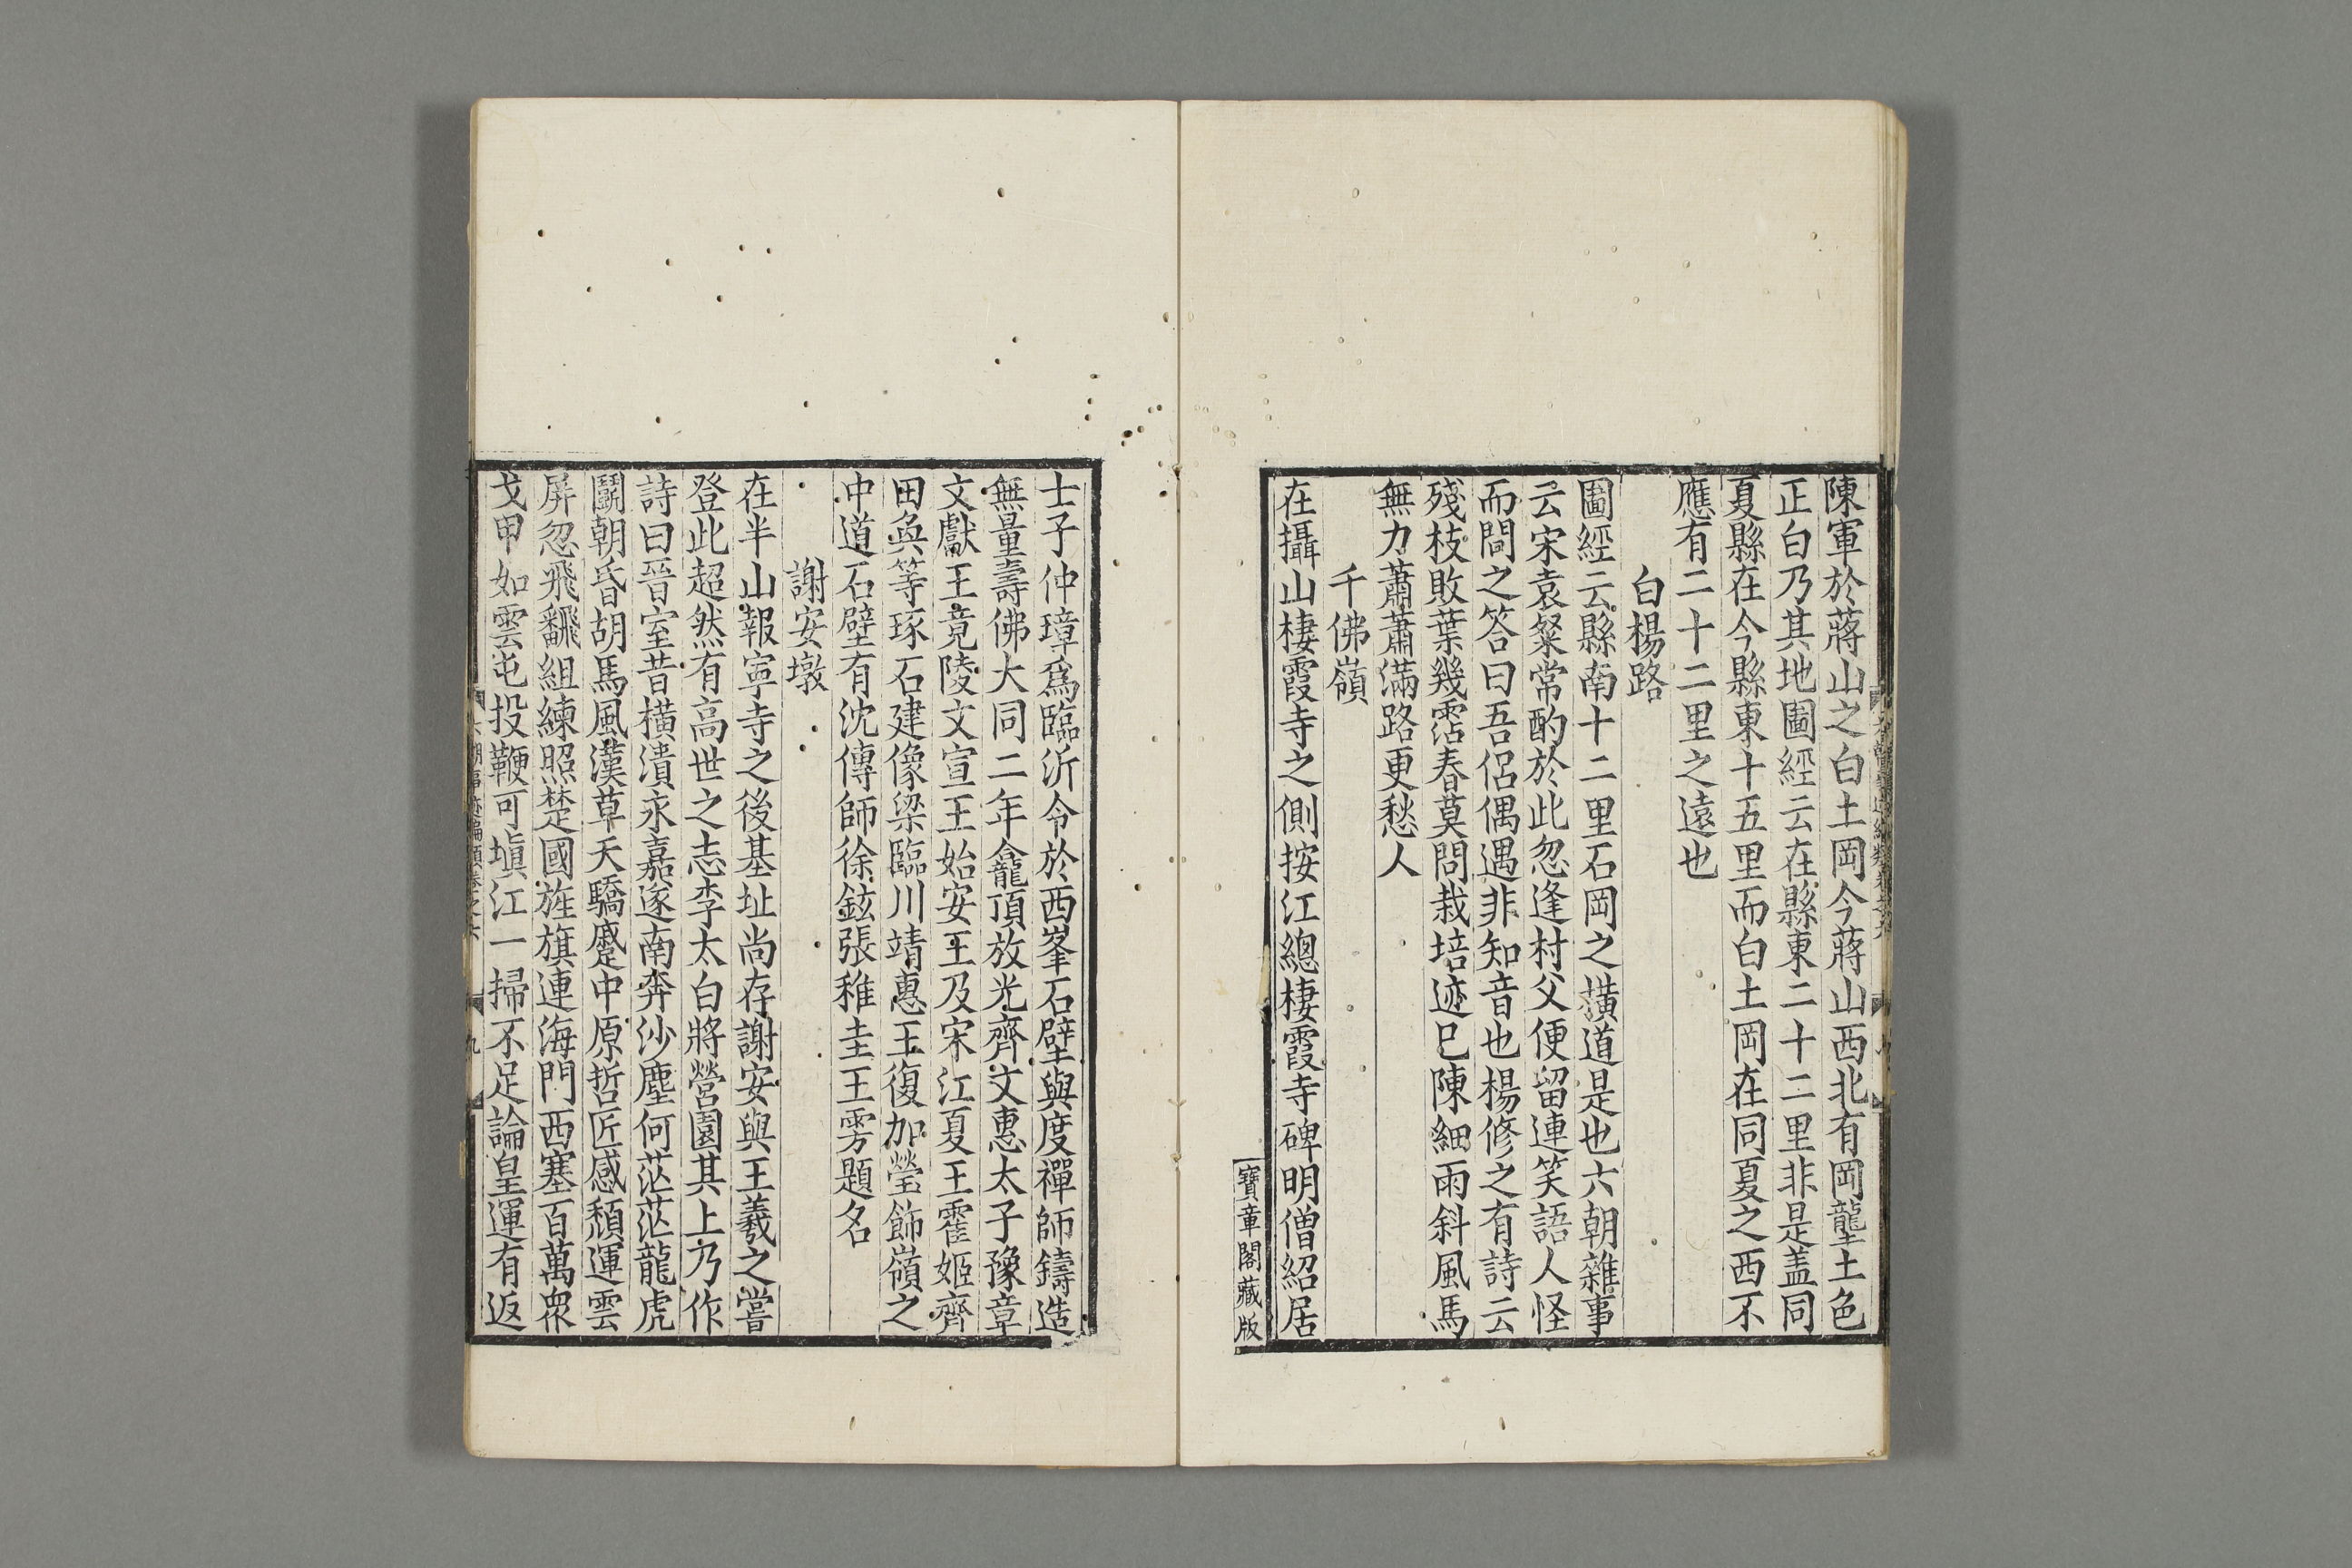 陳軍於蔣山之白土岡今蔣山西北有岡壟土色
正白乃其地圖經云在縣東二十二里非是盖同
夏縣在今縣東十五里而白土岡在同夏之西不
應有二十二里之遠也
白楊路
圖經云縣南十二里石岡之橫道是也六朝雜事
云宋袁粲常酌於此忽逢村父便留連笑語人怪
而問之答曰吾侶偶遇非知音也楊修之有詩云
殘枝敗葉幾霑春莫問栽培迹巳陳細雨斜風馬
無力蕭蕭滿路更愁人
千佛嶺
在攝山棲霞寺之側按江總棲霞寺碑明僧紹居
寶章閣藏版
士子仲璋爲臨沂令於西峯石壁與度禪師鑄造
無量壽佛大同二年龕頂放光齊文惠太子豫章
文獻王竟陵文宣王始安王及宋江夏王霍姬齊
田奐等琢石建像梁臨川靖惠王復加瑩飾嶺之
中道石壁有沈傳師徐鉉張稚圭王雱題名
謝安墩
在半山報寧寺之後基址尚存謝安與王羲之嘗
登此超然有高世之志李太白將營園其上乃作
詩曰晉室昔橫潰永嘉遂南奔沙塵何茫茫龍虎
鬭朝昏胡馬風漢草天驕蹙中原哲匠感頹運雲
屏忽飛飜組練照楚國旌旗連海門西塞百萬衆
戈甲如雲屯投鞭可塡江一掃不足論皇運有返
六朝事迹編類卷之六
九